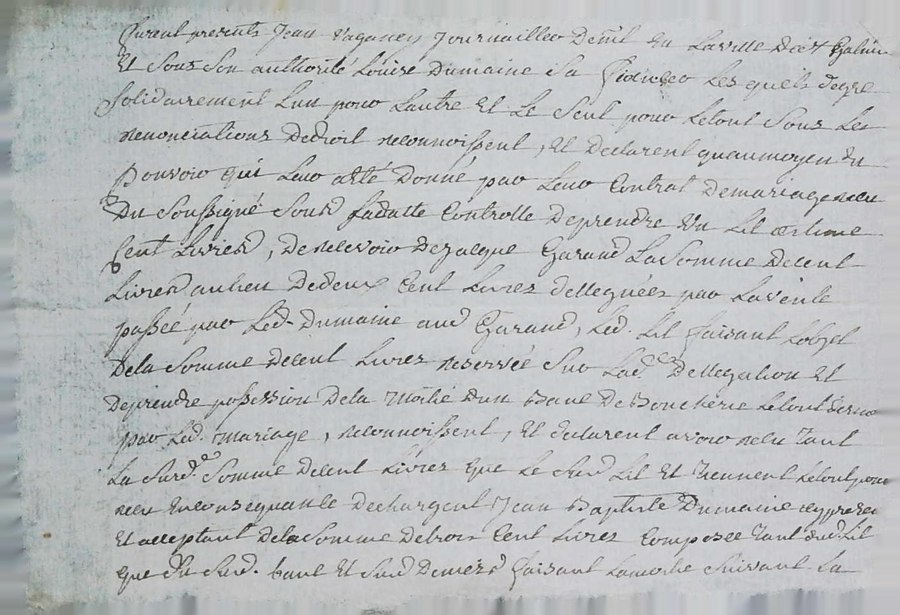 furent presents Jean Vaganey Journaillier Demt en Laville
Et Sous Son authorité Louise Dumaine Sa fiancée Lesquels degre
Solidairement Lun pour Lautre Et Le Seul pour Letout Sous Les
renonciations Dedroit reconnoissent, Et Declarent quaumoyen du
pouvoir qui Leur aété Donné par Leur Contrat Demariage recu
Du Soussigné Sous Ladatte Controlle Deprendre Un Lit estimé
Cent Livres, De recevoir DeJacque Garaud La Somme Decent
Livres aulieu Dedeux Cent Livres delleguées par Lavente
passée par Led. Dumaine aud Garaud, Led. Lit faisant Lobjet
Dela Somme Decent Livres reservée Sur Lad. Dellegation Et
Deprendre possession Dela Moitié Dun Banc De Boucherie Letout
par Led. Mariage, reconnoissent, Et declarent avoir recu Tant
La Surd. Somme Decent Livres que Le Surd Lit Et Tiennent Letout pour
recu Enconsequance Dechargent Jean Baptiste Dumaine cypresen
Et acceptant Dela Somme Detrois Cent Livres Composée Tant dud. Lit
que Du Surd. banc Et Surd Deniers faisant Lamoitié Suivant La